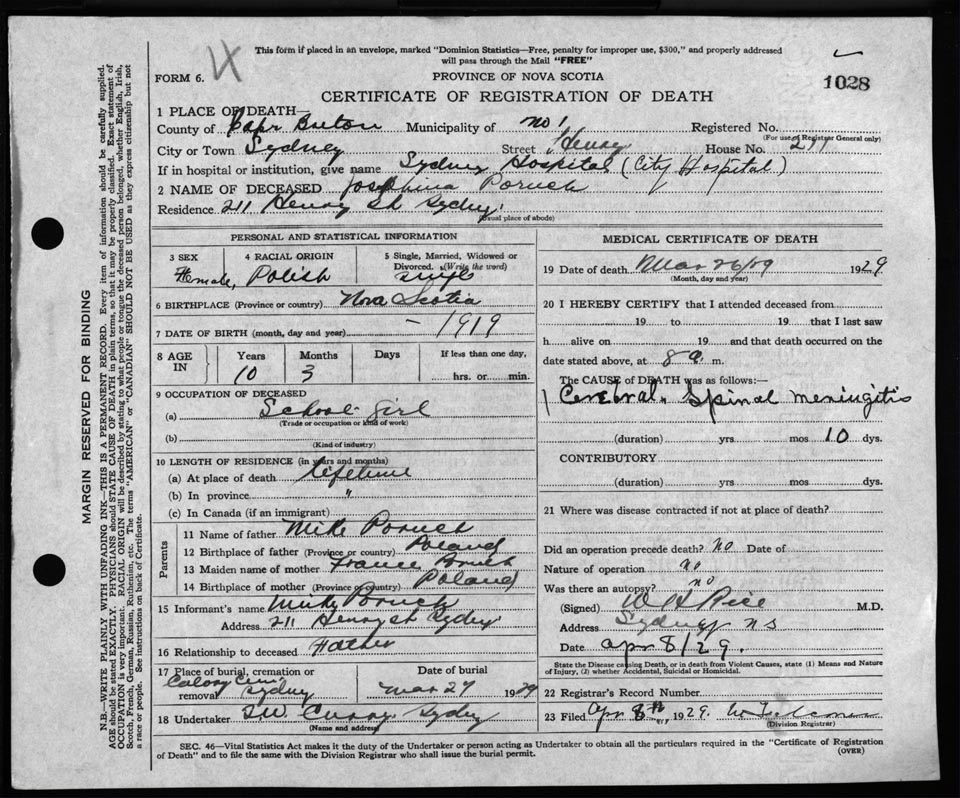 This form if placed in an envelope, marked "Dominion Statistics—Free, penalty for improper use, $300," and properly addressed
will pass through the Mail "FREE"
FORM 6.
PROVINCE OF NOVA SCOTIA
1028
CERTIFICATE OF REGISTRATION OF DEATH
1 PLACE OF DEATH—
County of Cape Breton Municipality of No 1 Registered No.
(For use of Registrar General only)
City or Town Sydney Street Henry House No. 211
If in hospital or institution, give name Sydney Hospital (City Hospital)
2 NAME OF DECEASED Josephina Poruck
Residence 211 Henry St Sydney
(usual place of abode)
PERSONAL AND STATISTICAL INFORMATION
3 SEX 4 RACIAL ORIGIN 5 Single, Married, Widowed or
Divorced. (Write the word)
Female, Polish single
6 BIRTHPLACE (Province or country) Nova Scotia
7 DATE OF BIRTH (month, day and year) — 1919
8 AGE IN Years Months Days If less than one day,
10 3 hrs. or min.
9 OCCUPATION OF DECEASED
(a) School girl
(Trade or occupation or kind of work)
(b)
(Kind of industry)
10 LENGTH OF RESIDENCE (in years and months)
(a) At place of death lifetime
(b) In province "
(c) In Canada (if an immigrant)
Parents
11 Name of father Mike Poruck
12 Birthplace of father (Province or country) Poland
13 Maiden name of mother
14 Birthplace of mother (Province or country) Poland
15 Informant's name Mike Poruck
Address 211 Henry st Sydney
16 Relationship to deceased Father
17 Place of burial, cremation or Date of burial
removal Sydney Mar 27 1929
18 Undertaker Curry, Sydney
(Name and address)
MEDICAL CERTIFICATE OF DEATH
19 Date of death Mar 26/29 1929
(Month, day and year)
20 I HEREBY CERTIFY that I attended deceased from
19 to 19 that I last saw
h alive on 19 and that death occurred on the
date stated above, at 8 a. m.
The CAUSE of DEATH was as follows:—
1 Cerebral Spinal meningitis
(duration) yrs. mos 10 dys.
CONTRIBUTORY
(duration) yrs. mos. dys.
21 Where was disease contracted if not at place of death?
Did an operation precede death? No Date of
Nature of operation no
Was there an autopsy? no
(Signed) W H Rice M.D.
Address Sydney NS
Date apr 8/29.
State the Disease causing Death, or in death from Violent Causes, state (1) Means and Nature
of Injury, (2) whether Accidental, Suicidal or Homicidal.
22 Registrar's Record Number
23 Filed Apr 8th 1929.
(Division Registrar)
SEC. 46—Vital Statistics Act makes it the duty of the Undertaker or person acting as Undertaker to obtain all the particulars required in the "Certificate of Registration
of Death" and to file the same with the Division Registrar who shall issue the burial permit.
(OVER)
MARGIN RESERVED FOR BINDING
N.B.—WRITE PLAINLY WITH UNFADING INK—THIS IS A PERMANENT RECORD. Every item of information should be carefully supplied.
AGE should be stated EXACTLY. PHYSICIANS should STATE CAUSE OF DEATH in plain terms, so that it may be properly classified. Exact statement of
OCCUPATION is very important. RACIAL ORIGIN will be described by stating to what people or tongue the deceased person belonged, whether English, Irish,
Scotch, French, German, Russian, Ruthenian, etc. The terms "AMERICAN" or "CANADIAN" SHOULD NOT BE USED as they express citizenship but not
a race or people. See instructions on back of Certificate.